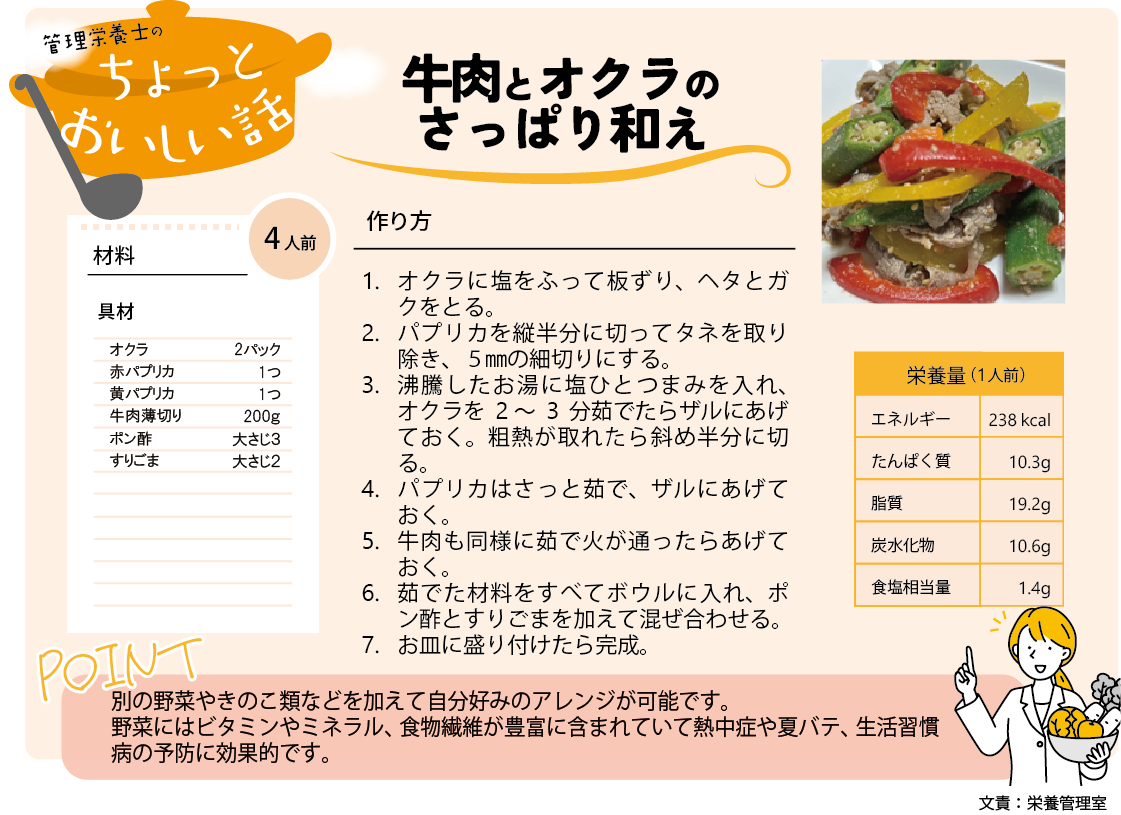 管理栄養士の
ちょっと
おいしい話
牛肉とオクラの
さっぱり和え
材料
4人前
具材
オクラ 2パック
赤パプリカ 1つ
黄パプリカ 1つ
牛肉薄切り 200g
ポン酢 大さじ3
すりごま 大さじ2
作り方
1. オクラに塩をふって板ずり、ヘタとガ
クをとる。
2. パプリカを縦半分に切ってタネを取り
除き、５㎜の細切りにする。
3. 沸騰したお湯に塩ひとつまみを入れ、
オクラを２～３分茹でたらザルにあげ
ておく。粗熱が取れたら斜め半分に切
る。
4. パプリカはさっと茹で、ザルにあげて
おく。
5. 牛肉も同様に茹で火が通ったらあげて
おく。
6. 茹でた材料をすべてボウルに入れ、ポ
ン酢とすりごまを加えて混ぜ合わせる。
7. お皿に盛り付けたら完成。
栄養量（1人前）
エネルギー 238 kcal
たんぱく質 10.3g
脂質 19.2g
炭水化物 10.6g
食塩相当量 1.4g
POINT
別の野菜やきのこ類などを加えて自分好みのアレンジが可能です。
野菜にはビタミンやミネラル、食物繊維が豊富に含まれていて熱中症や夏バテ、生活習慣
病の予防に効果的です。
文責：栄養管理室